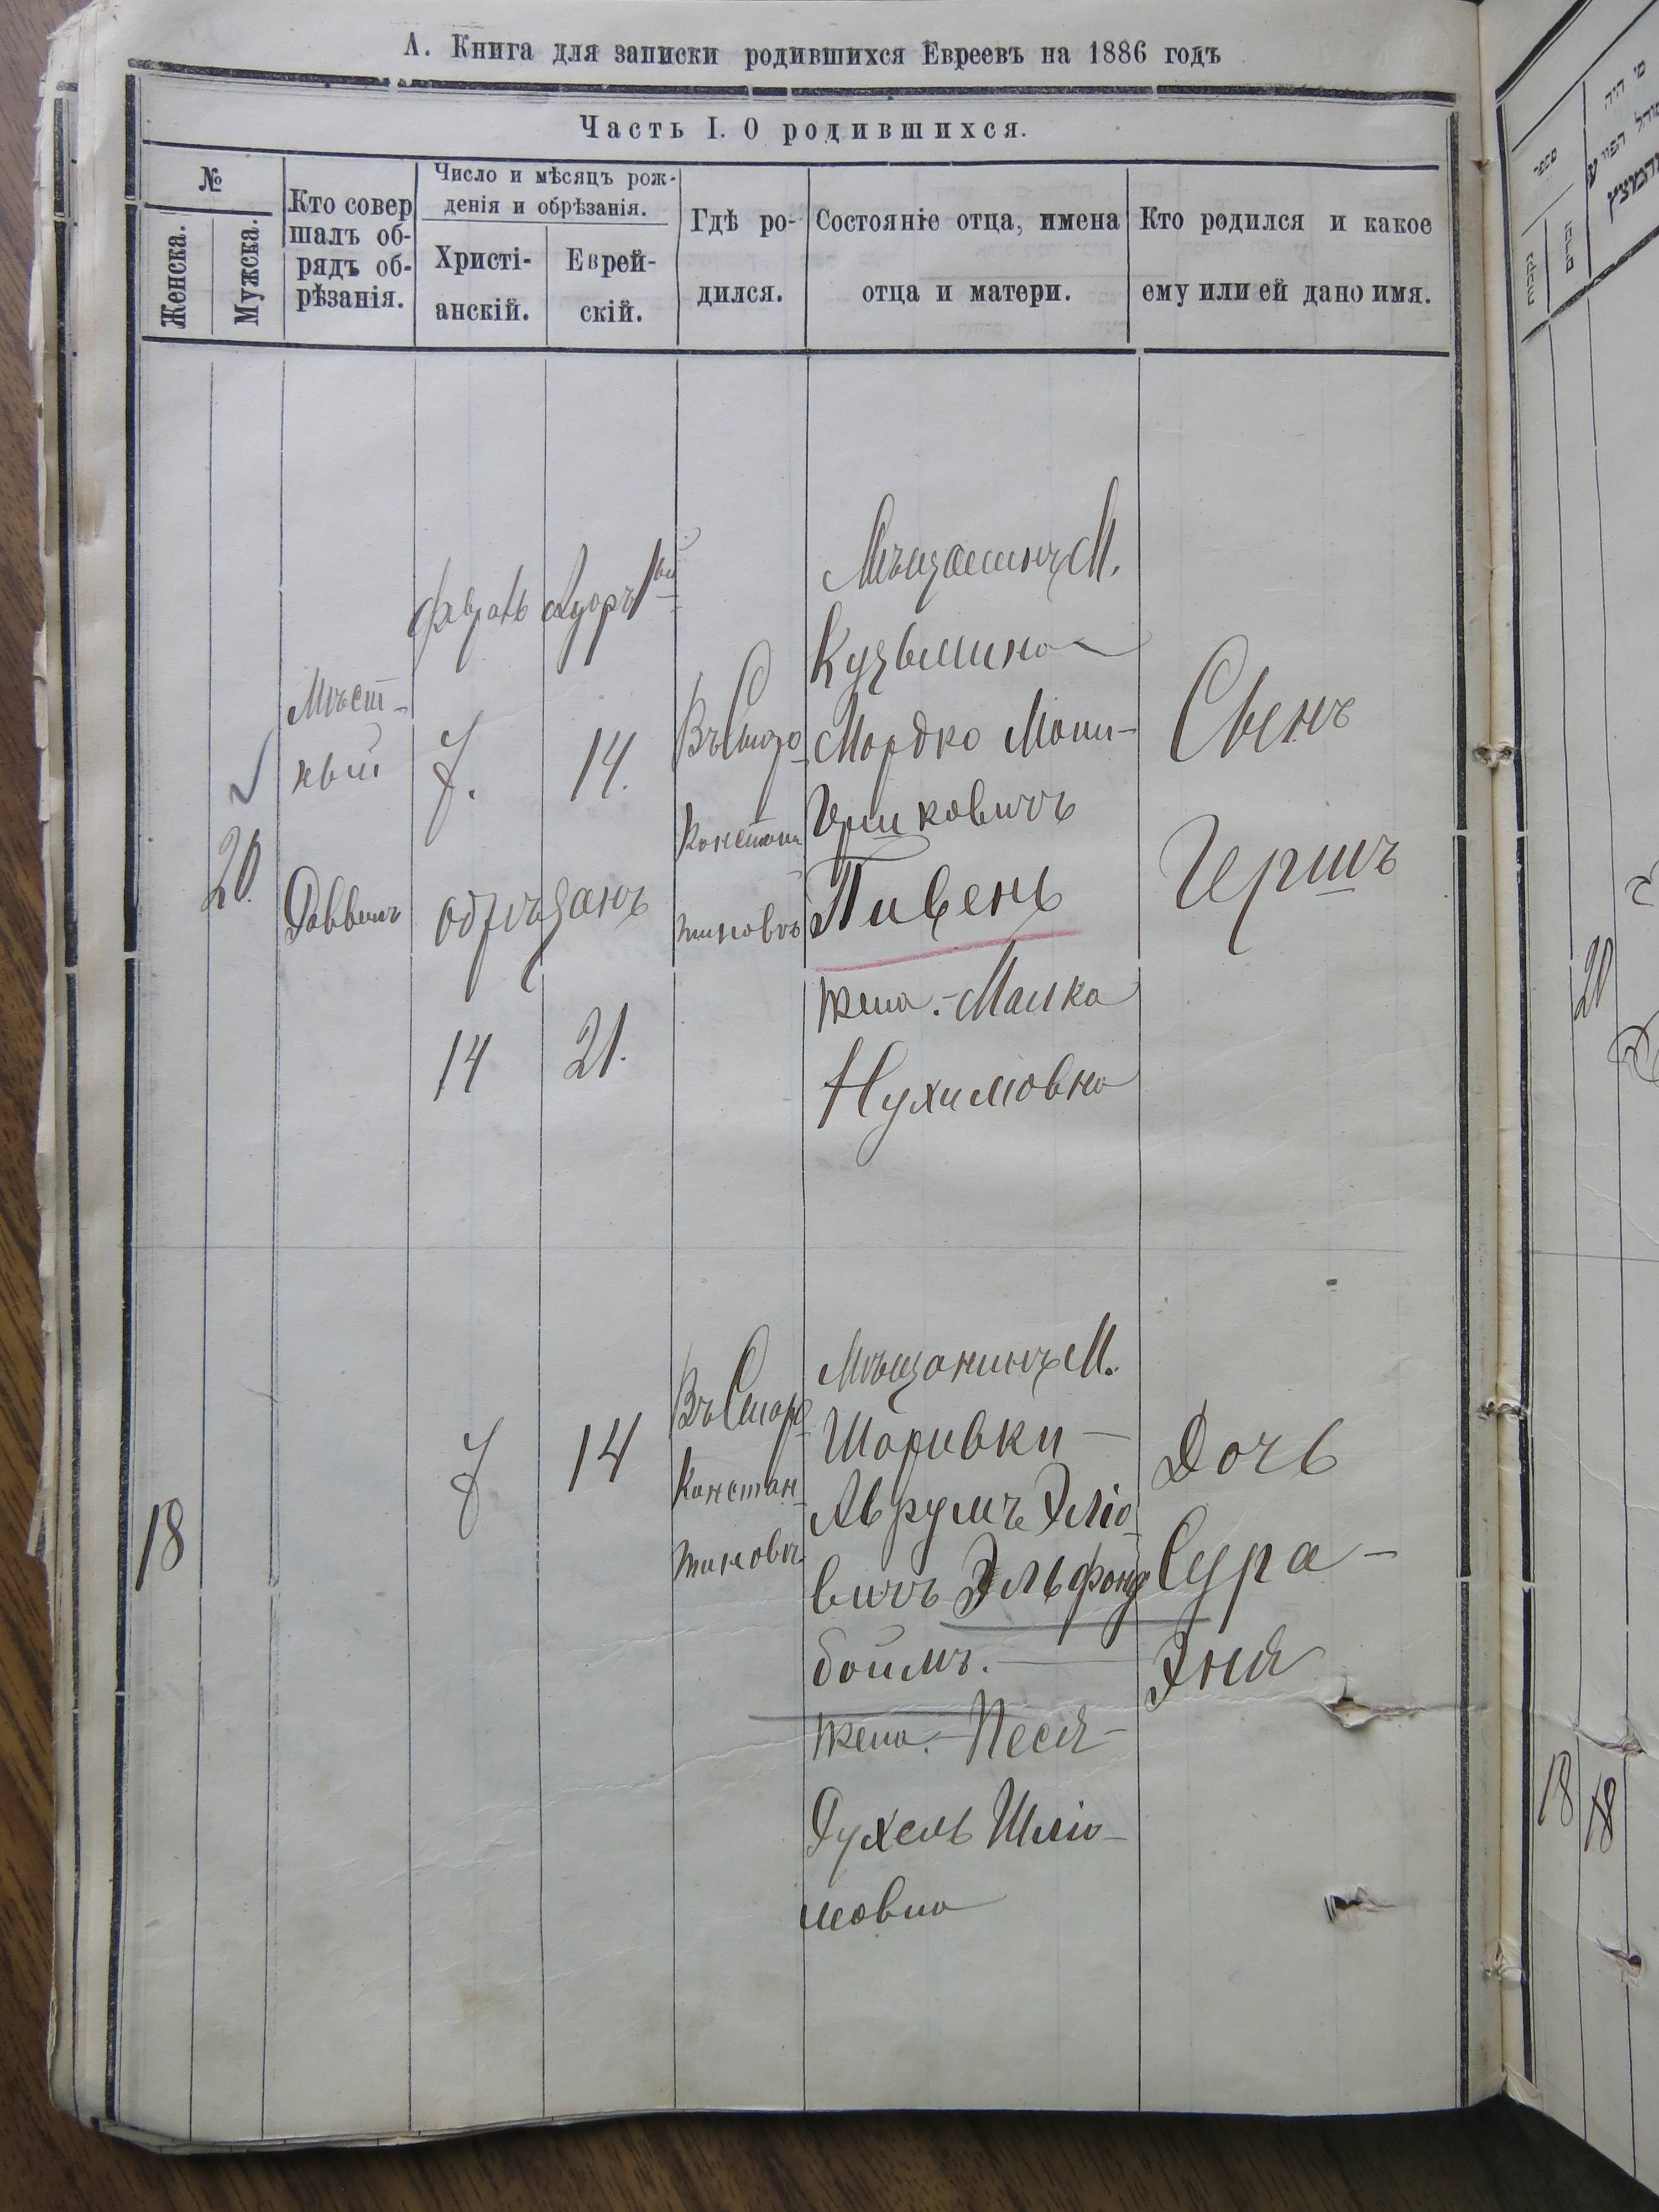 А. Книга для записки родившихся Евреевъ на 1886 годъ
Часть I. О родившихся.
№
Женска.
Мужска.
Кто совер
шалъ об-
рядъ об-
рѣзанія.
Число и мѣсяцъ рож-
денія и обрѣзанія.
Христі-
анскій.
Еврей-
скій.
Гдѣ ро-
дился.
Состояніе отца, имена
отца и матери.
Кто родился и какое
ему или ей дано имя.
20.
Мѣст-
ный
Раввинъ
7.
обрѣзанъ
14
14.
21.
Констан
тиновѣ
Мѣщанинъ М.
Кузьмина
Мордко Мони-
Гершковичъ
Пивень
жена - Малка
Нухимовна
Сынъ
Гершъ
18
7
14
Въ Старо
Констан-
тиновѣ
Мѣщанинъ М.
Шаривки
Аврумъ Эліо-
вичъ Эльфонд
боймъ.
жена - Песя-
Рухель Шліо-
мовна
Дочь
Сура-
Эня
מי היה
מספר
נקבות
זכרים
20
18
18